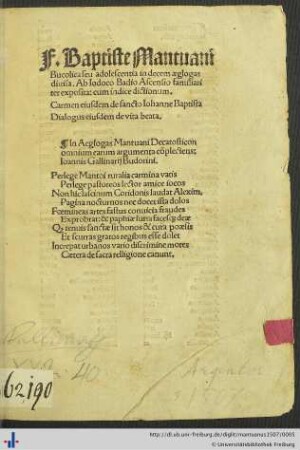 F. Baptiste Mantuani
Bucolica seu adolescentia in decem æglogas
diuisa. Ab Iodoco Badio Ascensio familiari
ter exposita: cum indice dictionum.
Carmen eiusdem de sancto Iohanne Baptista
Dialogus eiusdem de vita beata.
In Aeglogas Mantuani Decatosticon
omnium earum argumenta cōplectens:
Ioannis Gallinarij Budorini.
Perlege Mantoi ruralia carmina vatis
Perlege pastoreos lector amice iocos
Non hic lasciuum Coridonis laudat Alexim,
Pagina nocturnos nec docet illa dolos
Formineas artes fastus conuicia fraudes
Exprobrat: & paphiæ furta
Q tenuis sanctæ sit honos & cura poæsis
Ex scurras gratos regibus esse dolet
Increpat urbanos vario discrimine mores
Cætera de sacra relligione canunt.
62,190
http://dl.ub.uni-freiburg.de/diglit/mantuanus1507/0005
© Universitätsbibliothek Freiburg